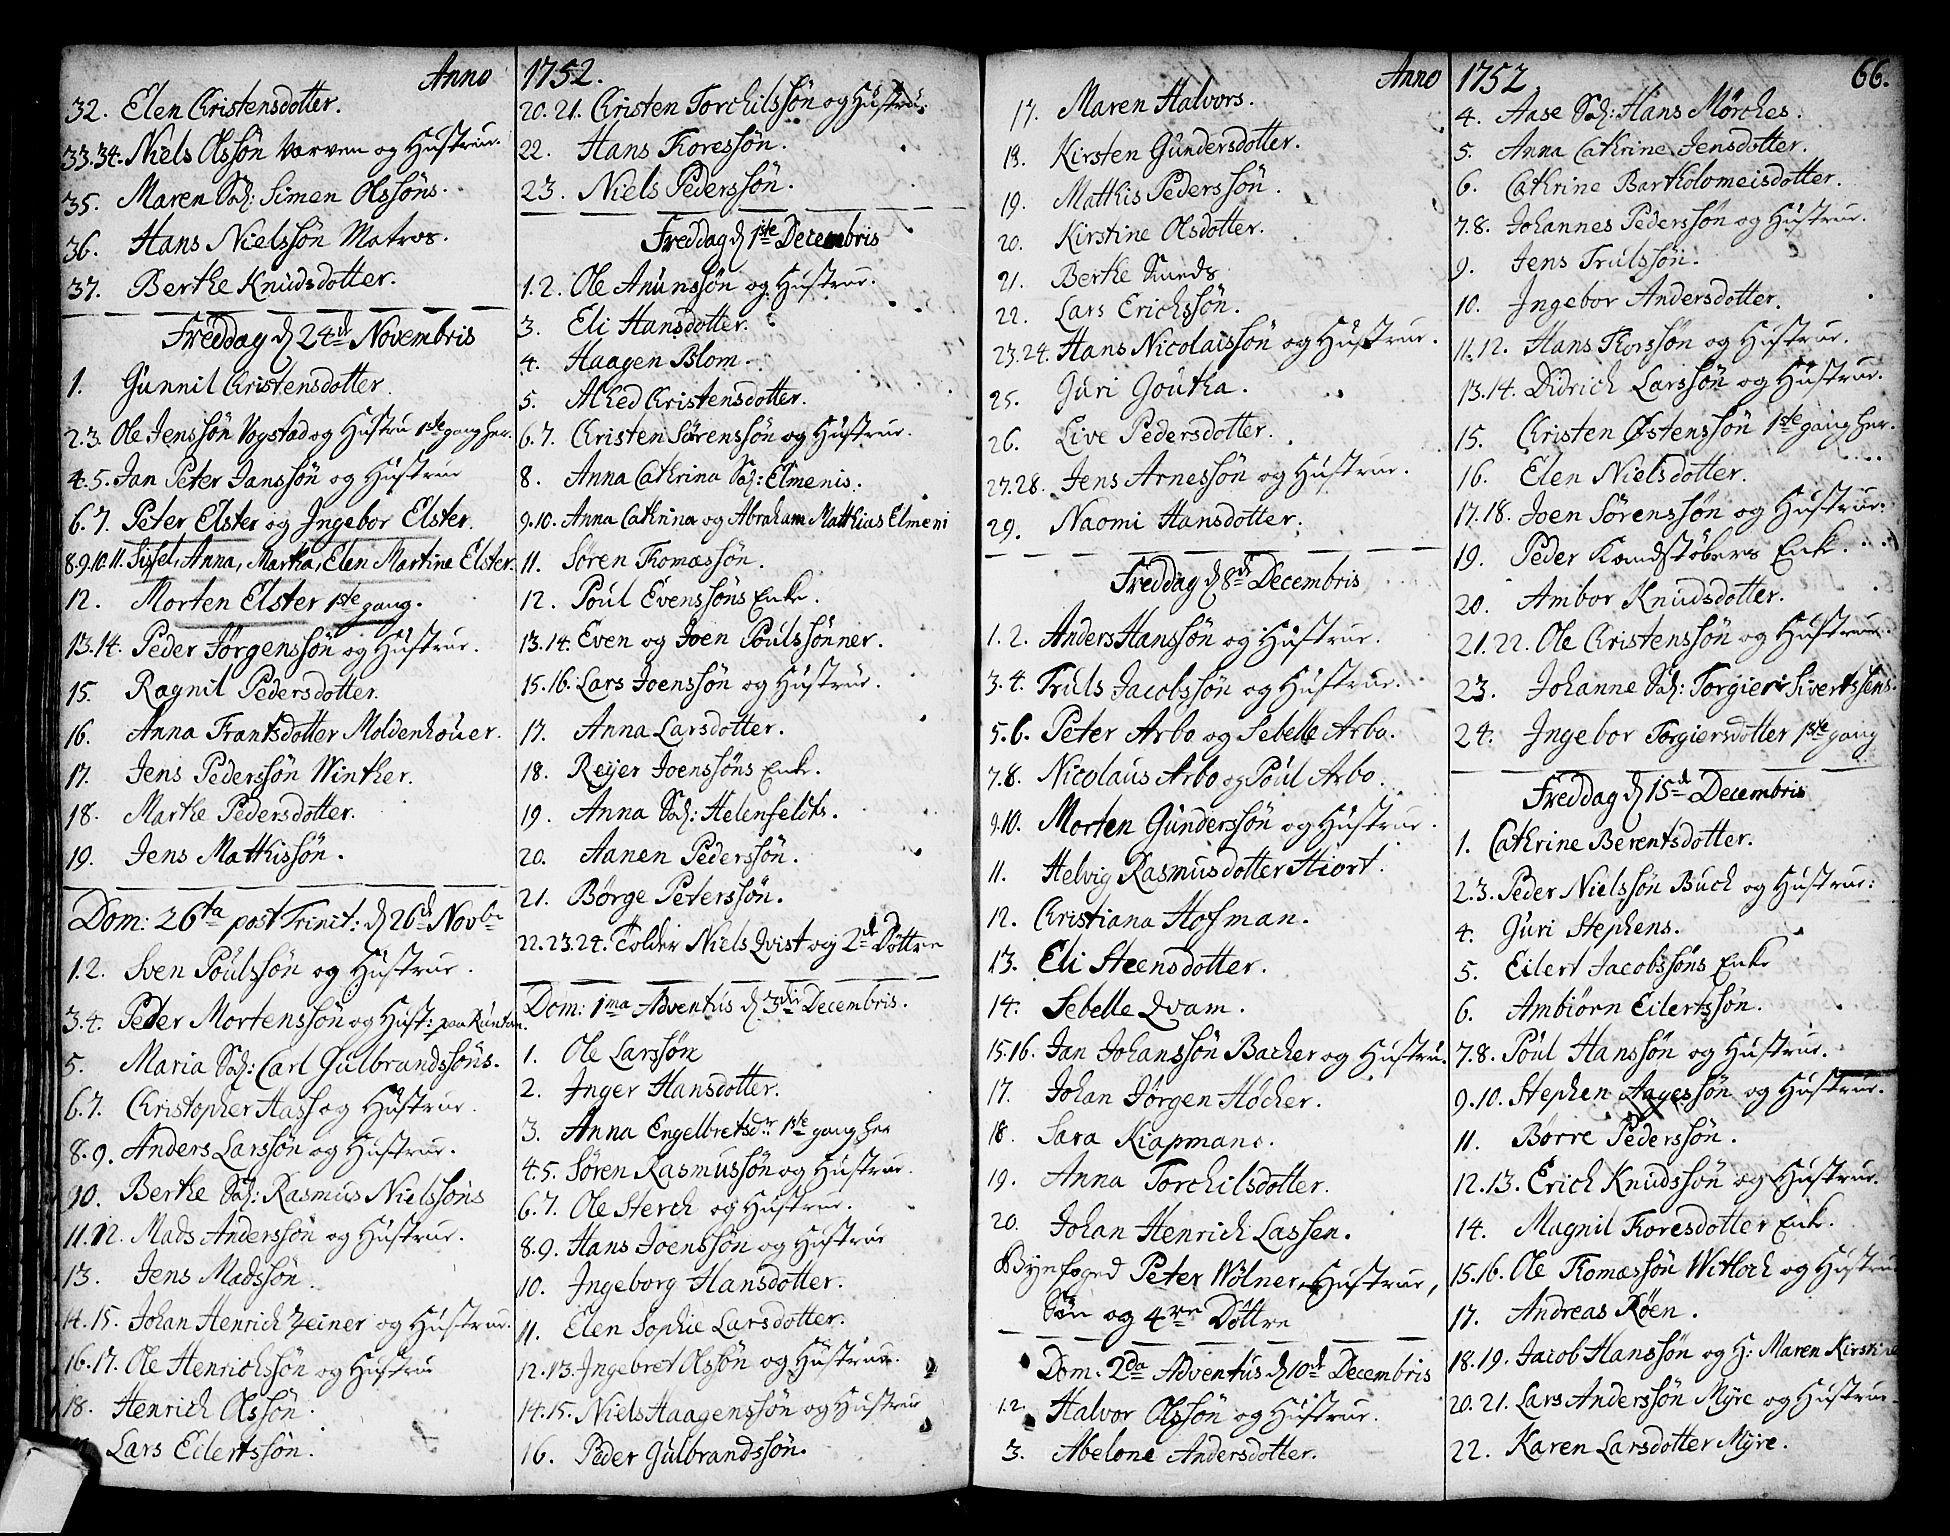 Anno
32. Elen Christensdotter.
33.34. Niels Olssön Værven og Hustrue.
35. Maren Sal: Simen Olssöns.
36. Hans Nielssön Matros.
37. Berthe Knudsdotter.
Freddag d 24de Novembris
1. Gunnil Christensdotter.
2.3. Ole Jenssön Vogstad og Hustru 1ste gang her.
4.5. Jan Peter Janssön og Hustrue
6.7. Peter Elster og Ingebor Elster.
8.9.10.11. Sissel, Anna, Martha, Elen Martine Elster.
12. Morten Elster 1ste gang.
13.14. Peder Jörgenssön og Hustrue.
15. Ragnil Pedersdotter.
16. Anna Frantsdotter Moldenhouer.
17. Jens Pederssön Winther.
18. Marthe Pedersdotter.
19. Jens Matthissön.
Dom: 26ta post Trinit: d 26de Novbr
1.2. Sven Poulssön og Hustrue.
3.4. Peder Mortenssön og Hust: paa Runtan.
5. Maria Sal: Carl Gulbrandssöns.
6.7. Christopher Hass og Hustrue.
8.9. Anders Larssön og Hustrue.
10. Berthe Sal: Rasmus Nielssöns
11.12. Mads Anderssön og Hustrue.
13. Jens Madssön.
14.15. Johan Henrich Zeiner og Hustrue.
16.17. Ole Henrichssön og Hustrue
18. Henrich Olssön.
Lars Eilertssön.
1752.
20.21. Christen Torchilssön og Hustrue.
22. Hans Thoressön.
23. Niels Pederssön.
Freddag d 1ste Decembris
1.2. Ole Anunssön og Hustrue.
3. Eli Hansdotter.
4. Haagen Blom.
5. Alhed Christensdotter.
6.7. Christen Sörenssön og Hustrue.
8. Anna Cathrina Sal: Elmenis.
9.10. Anna Cathrina og Abraham Matthias Elmeni
11. Sören Thomæssön.
12. Poul Evenssöns Enke.
13.14. Even og Joen Poulssönner.
15.16. Lars Joenssön og Hustrue.
17. Anna Larsdotter.
18. Reyer Joenssöns Enke.
19. Anna Sal: Helenfeldts.
20. Aanen Pederssön.
21. Börge Peterssön.
22.23.24. Tolder Niels Qvist og 2de Döttre
Dom: 1ma Adventus d 3die Decembris.
1. Ole Larssön
2. Inger Hansdotter.
3. Anna Engelbretsdr 1ste gang her
4.5. Sören Rasmussön og Hustrue.
6.7. Ole Sterch og Hustrue.
8.9. Hans Joenssön og Hustrue
10. Ingeborg Hansdotter.
11. Elen Sophie Larsdotter.
12.13. Ingebret Olssön og Hustrue.
14.15. Niels Haagenssön og Hustrue
16. Peder Gulbrandssön.
Anno
17. Maren Halvors.
18. Kirsten Gundersdotter.
19. Matthis Pederssön.
20. Kirstine Olsdotter.
21. Berthe Smeds
22. Lars Erichssön.
23.24. Hans Nicolaissön og Hustrue.
25. Guri Goutha.
26. Live Pedersdotter.
27.28. Jens Arnessön og Hustrue.
29. Naomi Hansdotter.
Freddag d 8de Decembris
1.2. Anders Hanssön og Hustrue.
3.4. Truls Jacobssön og Hustrue.
5.6. Peter Arbo og Sebelle Arbo.
7.8. Nicolaus Arbo og Poul Arbo.
9.10. Morten Gunderssön og Hustrue.
11. Helvig Rasmusdotter Hiort.
12. Christiana Hofman.
13. Eli Steensdotter.
14. Sebelle Qvam.
15.16. Jan Johanssön Bacher og Hustru.
17. Johan Jörgen Höcher.
18. Sara Kiapmans.
19. Anna Torchilsdotter.
20. Johan Henrich Lassen.
Byefoged Peter Wölner, Hustrue,
Sön og 4re Döttre
Dom. 2da Adventus d 10de Decembris
1.2. Halvor Olssön og Hustrue.
3. Abelone Andersdotter.
1752
66.
4. Aase Sal: Hans Mörches.
5. Anna Cathrine Jensdotter.
6. Cathrine Bartholomeisdotter.
7.8. Johannes Pederssön og Hustrue.
9. Jens Trulssön.
10. Ingebor Andersdotter.
11.12. Hans Thorssön og Hustrue.
13.14. Didrich Larssön og Hustrue.
15. Christen Østenssön 1ste gang her.
16. Elen Nielsdotter.
17.18. Joen Sörenssön og Hustrue.
19. Peder Kandstöbers Enke.
20. Ambor Knudsdotter.
21.22. Ole Christenssön og Hustrue.
23. Johanne Sal: Torgier Sivertssens.
24. Ingebor Torgiersdotter 1ste gang
Freddag d 15de Decembris
1. Cathrine Berentsdotter.
2.3. Peder Nielssön Buch og Hustrue.
4. Guri Stephens.
5. Eilert Jacobssöns Enke
6. Ambiörn Eilertssön.
7.8. Poul Hanssön og Hustrue.
9.10. Stephen Aagessön og Hustrue.
11. Börre Pederssön.
12.13. Erich Knudssön og Hustrue.
14. Magnil Thoresdotter Enke.
15.16. Ole Thomæssön Witloch og Hustrue
17. Andreas Röen.
18.19. Jacob Hanssön og H: Maren Kirstine
20.21. Lars Anderssön Myre og Hustrue
22. Karen Larsdotter Myre.